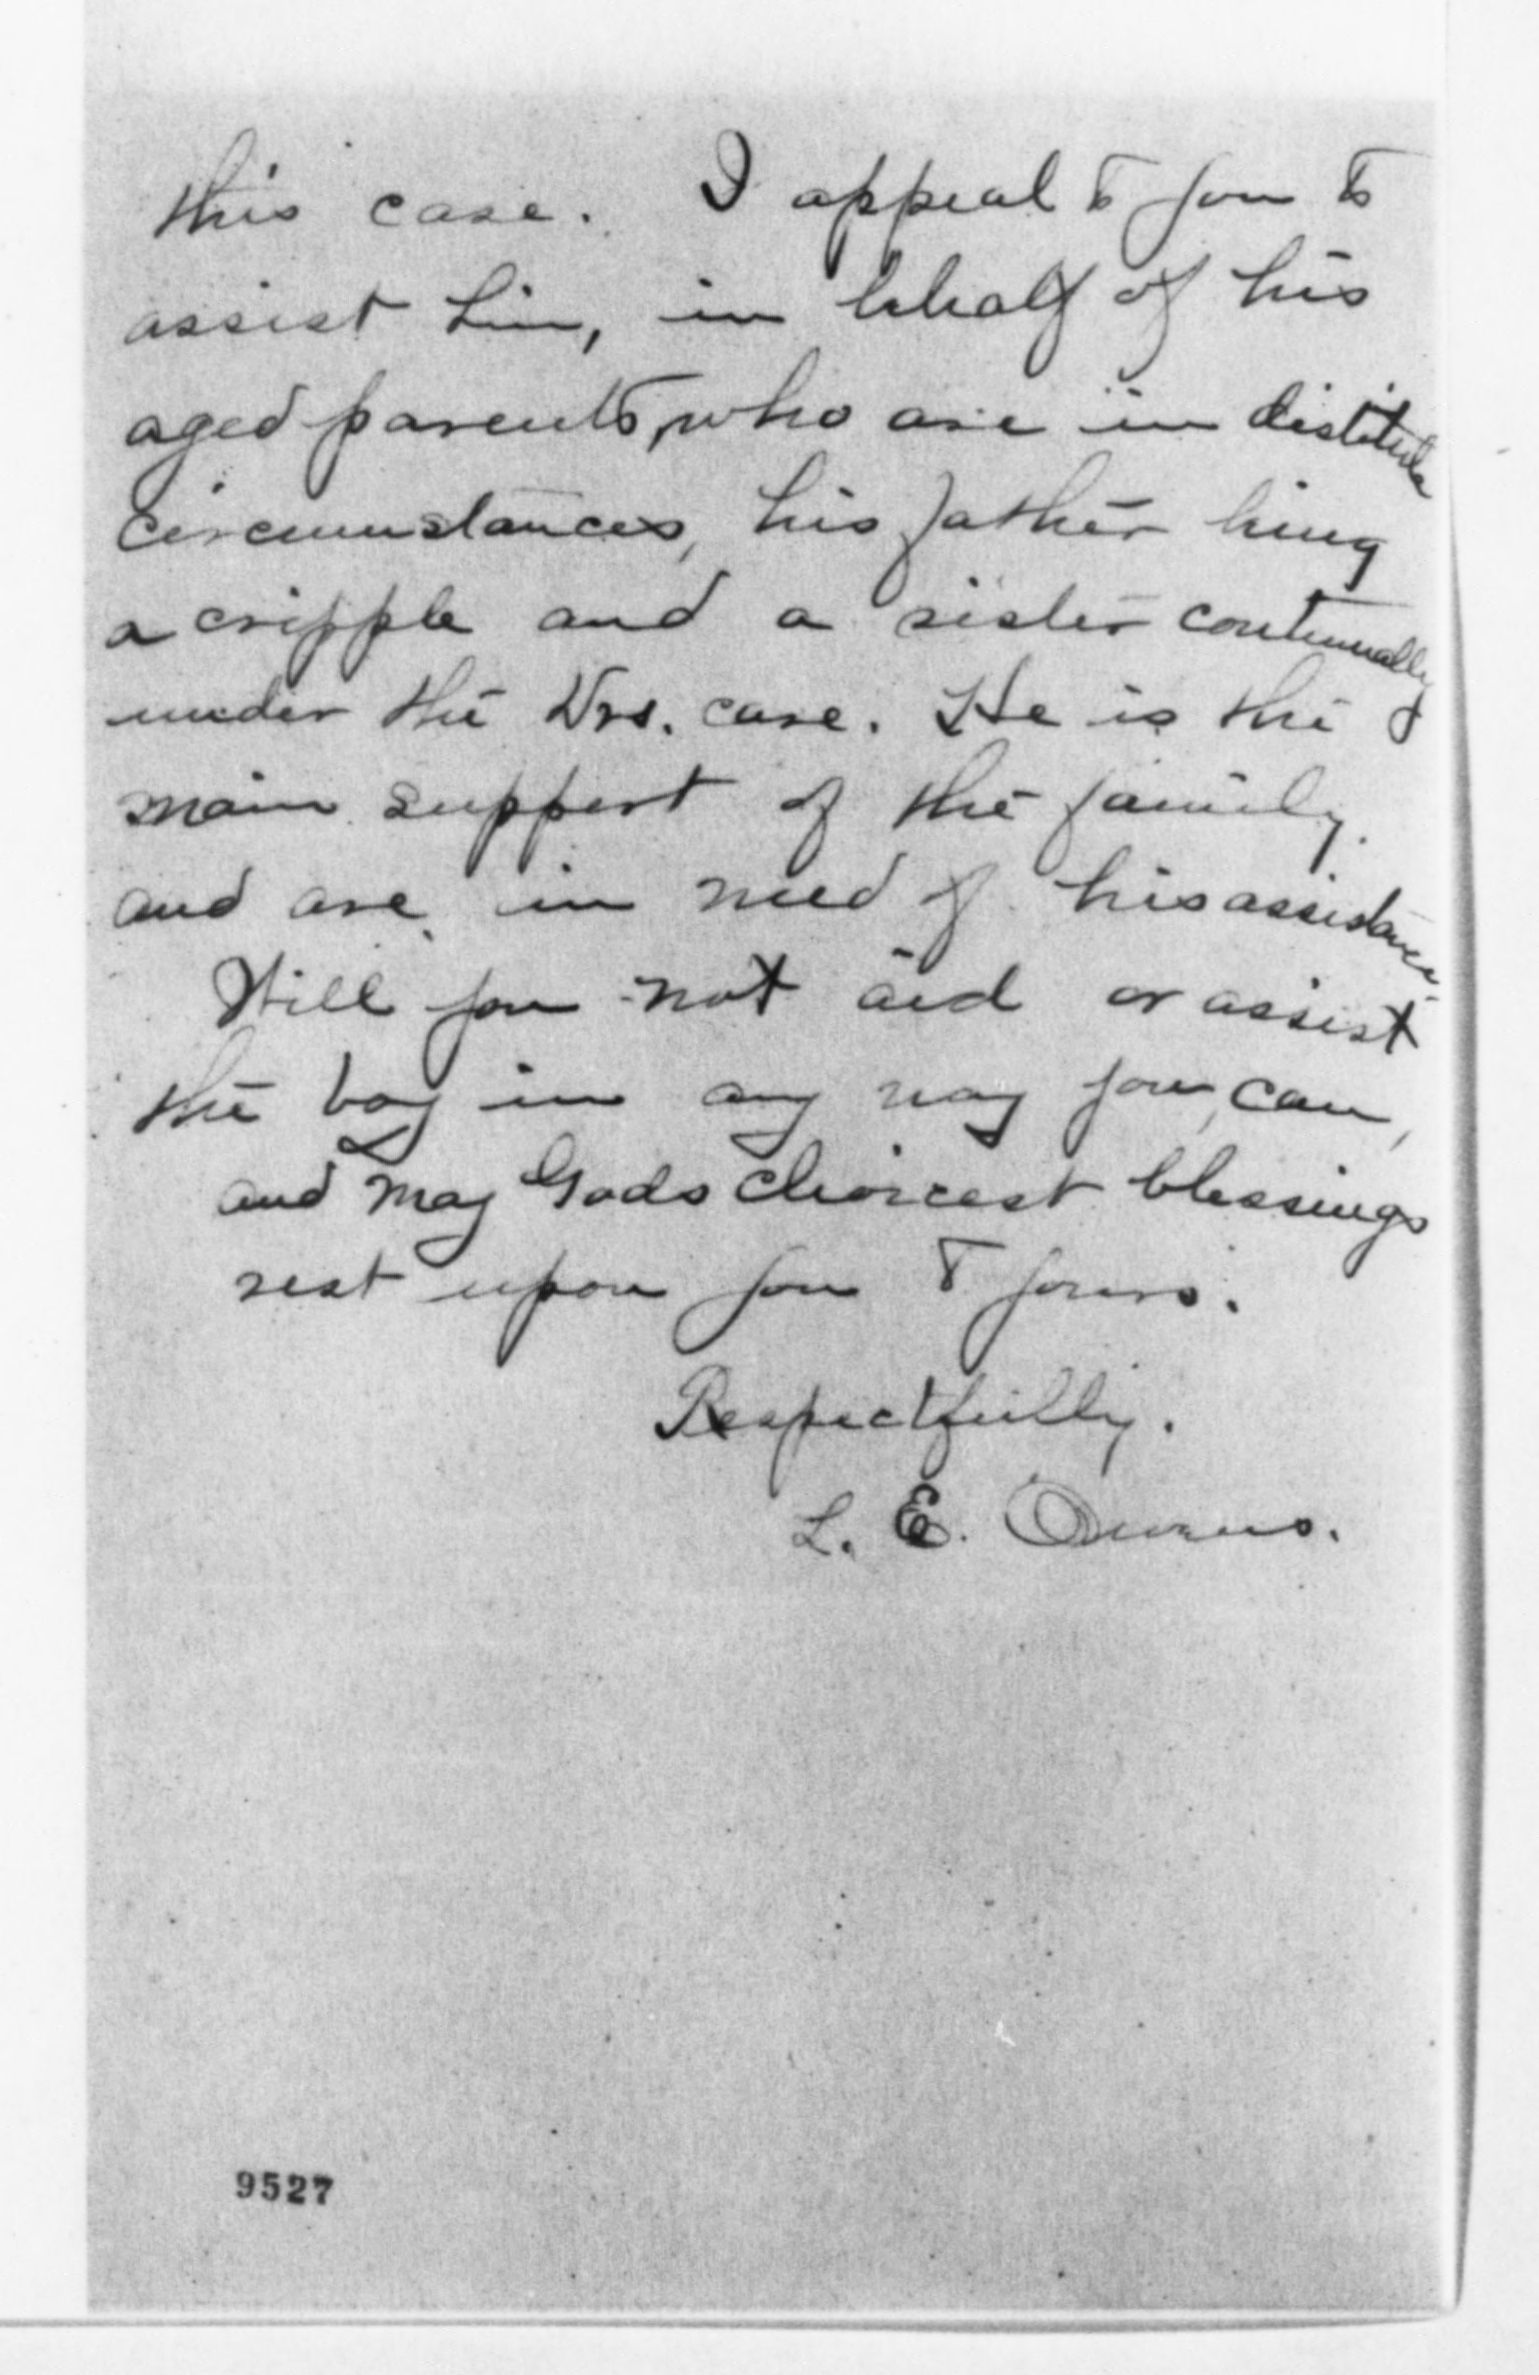 this case. I appeal to you to
assist him, in behalf of his
aged parents, who are in distitute
circumstances, his father being
a cripple and a sister continually
under the Drs. care. He is the
main support of the family.
and are in need of his assistance.
Will you not aid or assist
the boy in any way you can,
and may Gods choicest blessings
rest upon you & yours.
Respectfully.
L. E. Owens.
9527